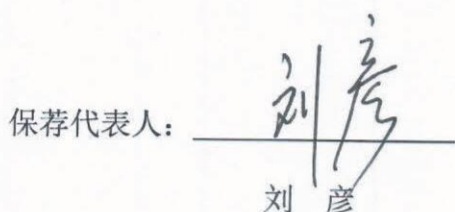 保荐代表人：刘彦
刘 彦